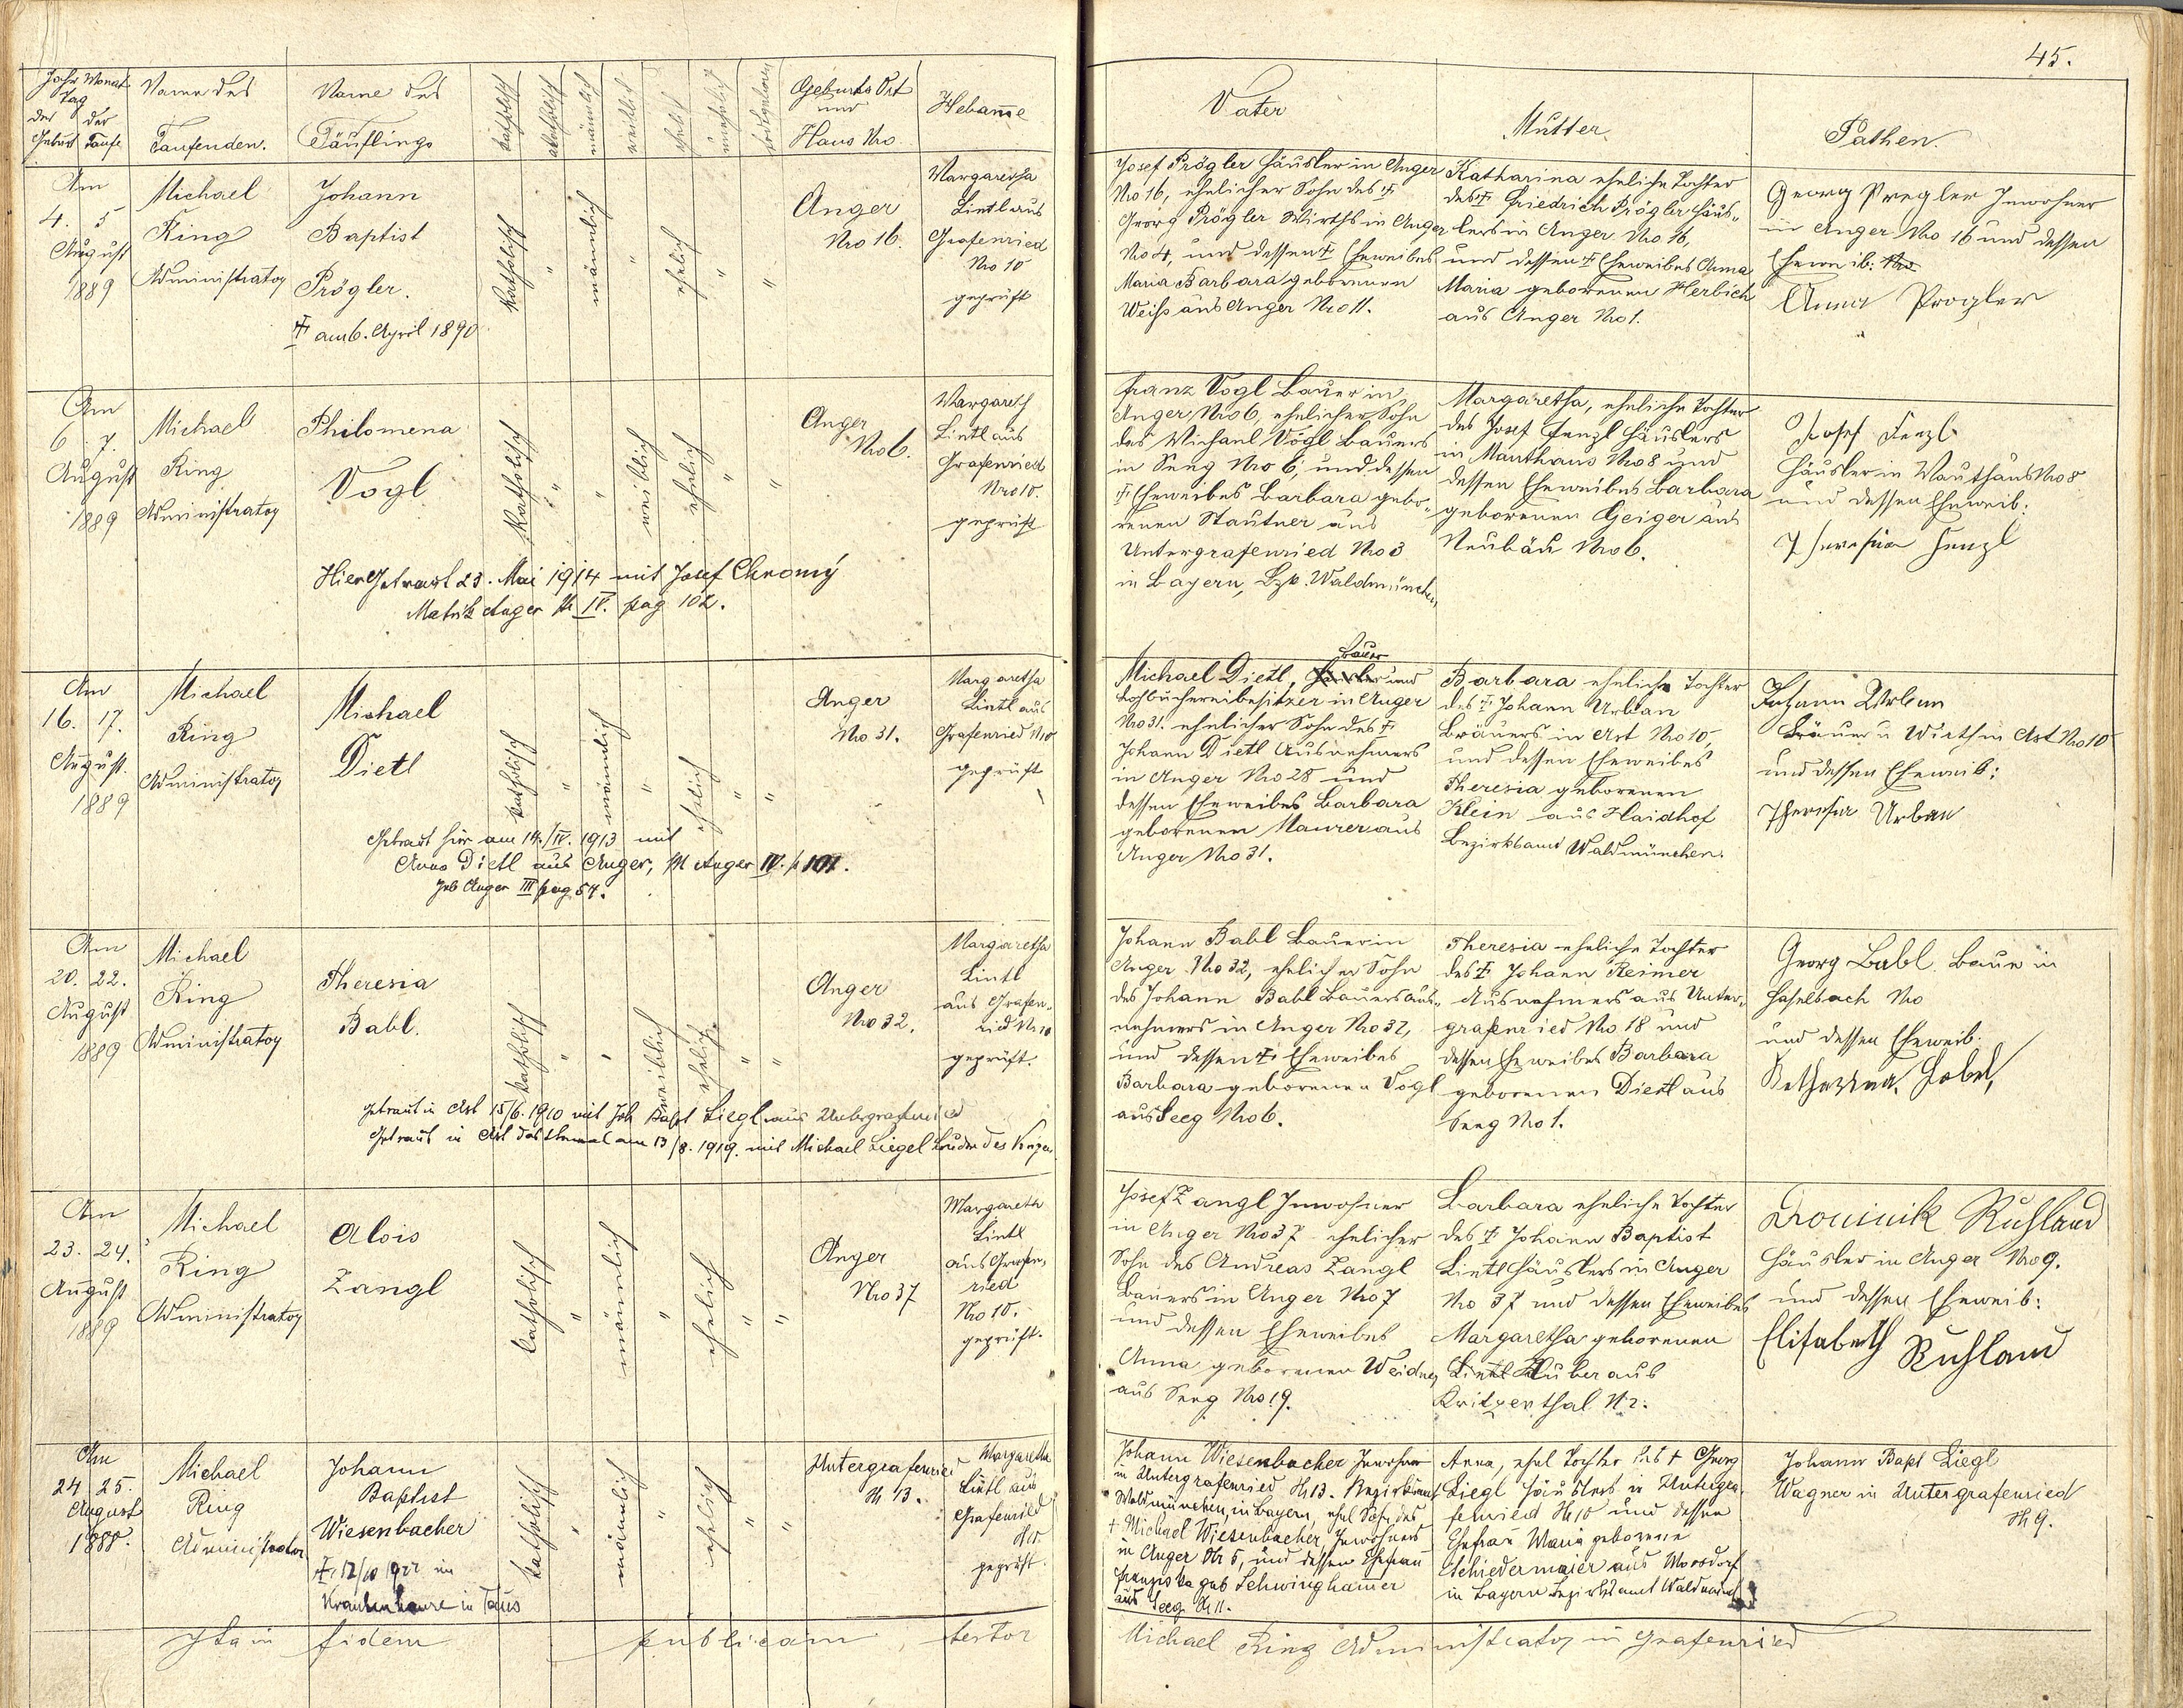 45.
Jahr Monat
Tag
der der
Geburt Taufe
Name des
Taufenden.
Name des
Täuflings
katholisch
akatholisch
männlich
weiblich
ehelich
unehelich
Geburts Ort
und
Haus Nro
Hebamme
Vater
Mutter
Pathen.
Am
4. 5
August
1889
Michael
Ring
Administrator
Johann
Baptist
Prögler.
† am 6. April 1890
katholisch
"
männlich
"
ehelich
"
"
Anger
Nro 16.
Margaretha
Lintl aus
Grafenried
Nro 10
geprüft
Josef Prögler Häusler in Anger
Nro 16, ehelicher Sohn des †
Georg Prögler Wirths in Anger
Nro 4, und dessen † Eheweibes
Maria Barbara geborenen
Weiß aus Anger Nro 11.
Katharina eheliche Tochter
des † Friedrich Prögler Häus-
lers in Anger Nro 16,
und dessen † Eheweibes Anna
Maria geborenen Herbich
aus Anger Nro 1.
Georg Pregler Inwohner
in Anger Nro 16 und dessen
Eheweib: Nro
Anna Progler
Am
6. 7.
August
1889
Michael
Ring
Administrator
Philomena
Vogl
katholisch
"
"
weiblich
ehelich
"
"
Anger
Nro 6.
Margareth
Lintl aus
Grafenried
Nro 10.
geprüft
Hier Getraut 23. Mai 1914 mit Josef Chromý
Matrik Anger IV. pag 102.
Franz Vogl Bauer in
Anger Nro 6, ehelicher Sohn
des Michael Vogl Bauers
in Seeg Nro 6, und dessen
† Eheweibes Barbara gebo-
renen Stautner aus
Untergrafenried Nro 3
in Bayern, Bzk. Waldmünchen
Margaretha, eheliche Tochter
des Josef Fenzl Häuslers
in Mauthaus Nro 8 und
dessen Eheweibes Barbara
geborenen Geiger aus
Neubäu Nro 6.
Josef Fenzl
Häusler in Mauthaus Nro 8
und dessen Eheweib:
Theresia Fenzl
Am
16. 17.
August.
1889
Michael
Ring
Administrator
Michael
Dietl
katholisch
"
männlich
"
ehelich
"
"
Anger
Nro 31.
Margaretha
Lintl aus
Grafenried N10
geprüft
Getraut hier am 14./IV. 1913 mit
Anna Dietl aus Anger, M Anger IV. p 101.
Geb Anger III pag 54.
Bauer
Michael Dietl, und
Lohbüchereibesitzer in Anger
Nro 31. ehelicher Sohn des †
Johann Dietl Ausnehmers
in Anger Nro 28 und
dessen Eheweibes Barbara
geborenen Maurer aus
Anger Nro 31.
Barbara eheliche Tochter
des † Johann Urban
Bräuers in Ast Nro 10,
und dessen Eheweibes
Theresia geborenen
Klein aus Haidhof
Bezirksamt Waldmünchen.
Johann Urban
Bräuer u Wirth in Ast Nro 10
und dessen Eheweib:
Theresia Urban
Am
20. 22.
August
1889
Michael
Ring
Administrator
Theresia
Babl.
katholisch
"
"
weiblich
ehelich
"
"
Anger
Nro 32.
Margaretha
Lintl
aus Grafen-
ried Nr 10
geprüft.
Getraut in Ast 15/6. 1910 mit Joh Bapt Liegl aus Untergrafenried
Getraut in Ast das 2temal am 13/8. 1919. mit Michael Liegel Bruder des Vorigen
Johann Babl Bauer in
Anger Nro 32, ehelicher Sohn
des Johann Babl Bauersaus-
nehmers in Anger Nro 32,
und dessen † Eheweibes
Barbara geborenen Vogl
aus Seeg Nro 6.
Theresia eheliche Tochter
des † Johann Reimer
Ausnehmers aus Unter-
grafenried Nro 18 und
dessen Eheweibes Barbara
geborenen Dietl aus
Seeg Nro 1.
Georg Babl Bauer in
Haselbach Nro
und dessen Eheweib.
Am
23. 24.
August
1889
Michael
Ring
Administrator
Alois
Zangl
katholisch
"
männlich
"
ehelich
"
"
Anger
Nro 37
Margareth
Lintl
aus Grafen-
ried
Nro 10.
geprüft.
Josef Zangl Inwohner
in Anger Nro 37 ehelicher
Sohn des Andreas Zangl
Bauers in Anger Nro 7
und dessen Eheweibes
Anna geborenen Weidner
aus Seeg Nro 19.
Barbara eheliche Tochter
des † Johann Baptist
Lintl Häuslers in Anger
Nro 37 und dessen Eheweibes
Margaretha geborenen
Lintl Huber aus
Kritzenthal N 2.
Dominik Ruhland
Häusler in Anger Nro 9.
und dessen Eheweib:
Elisabeth Ruhland
Am
24 25.
August
1888.
Michael
Ring
Administrator
Johann
Baptist
Wiesenbacher
† 12/10 1922 im
Krankenhause in Taus
katholisch
"
männlich
"
ehelich
"
"
Untergrafenried
N 13.
Margaretha
Lintl aus
Grafenried
N 10.
geprüft.
Johann Wiesenbacher Inwohner
in Untergrafenried N 13. Bezirksamt
Waldmünchen, in Bayern, ehel Sohn des
† Michael Wiesenbacher, Inwohners
in Anger Nr 5, und dessen Ehefrau
Franziska geb Schwinghamer
aus Seeg N 11.
Anna, ehel Tochter des † Georg
Liegl Häuslers in Untergra-
fenried N 10 und dessen
Ehefrau Maria geborene
Schiedermaier aus Moosdorf
in Bayern Bezirksamt Waldmünch
Johann Bapt Liegl
Wagner in Untergrafenried
N 9.
Ita in fidem publicam testor
Michael Ring Administrator in Grafenried